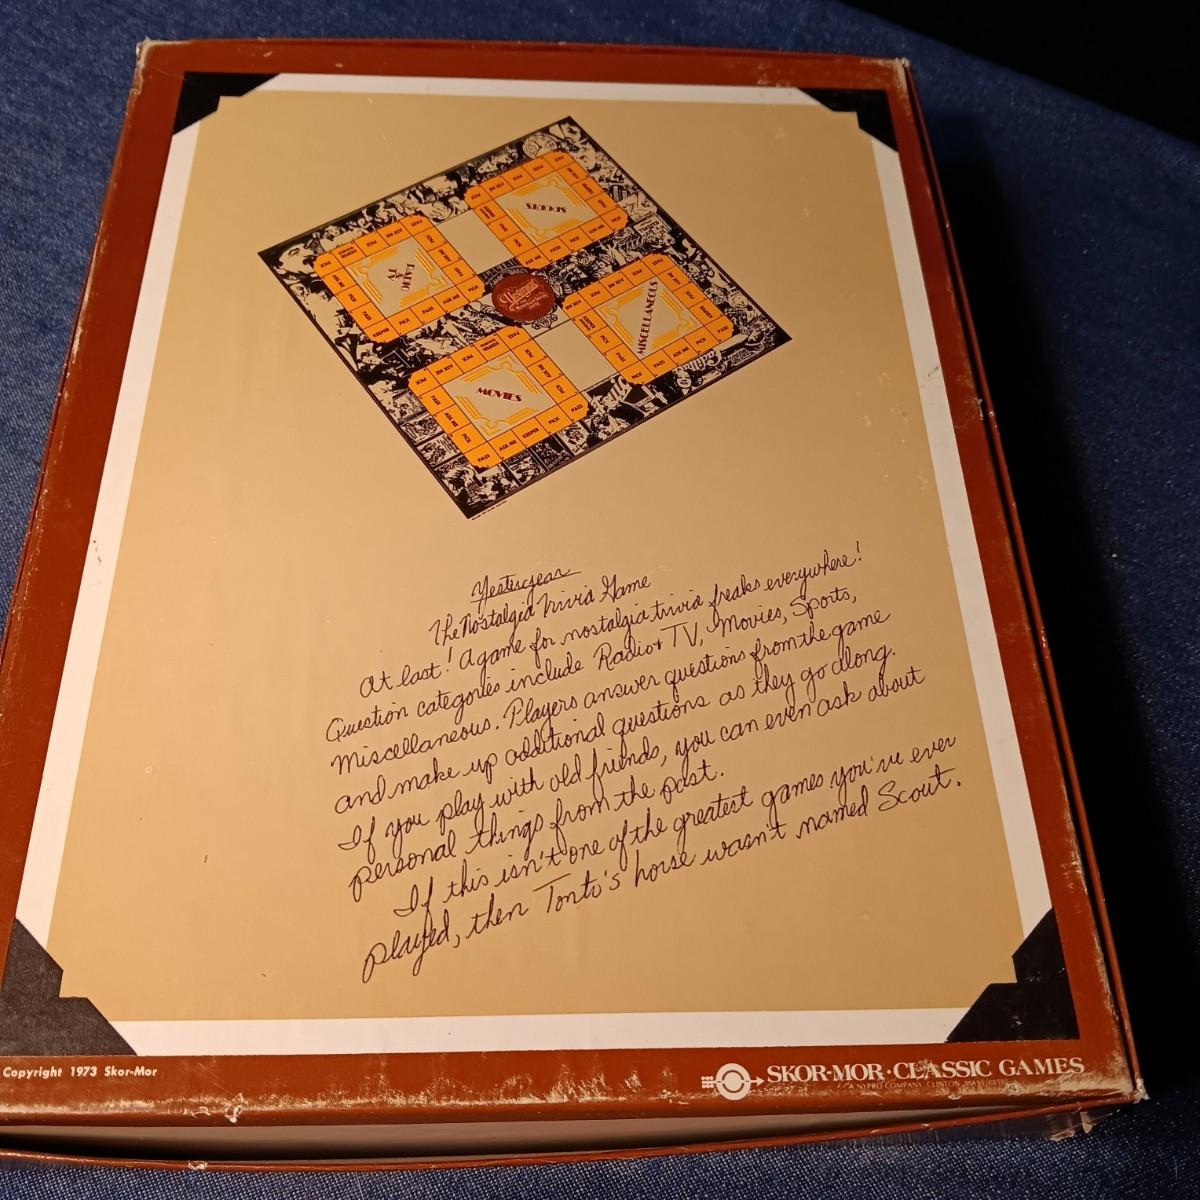 RADIO & TV
SPORTS
MOVIES
MISCELLANEOUS
Yesteryear
Yesteryear
The Nostalgia Trivia Game
At last! A game for nostalgia trivia freaks everywhere!
Question categories include Radio & TV, Movies, Sports,
Miscellaneous. Players answer questions from the game
and make up additional questions as they go along.
If you play with old friends, you can even ask about
personal things from the past.
If this isn't one of the greatest games you've ever
played, then Tonto's horse wasn't named Scout.
Copyright 1973 Skor-Mor
SKOR-MOR·CLASSIC GAMES
A NYPRO COMPANY CLINTON, MASS.